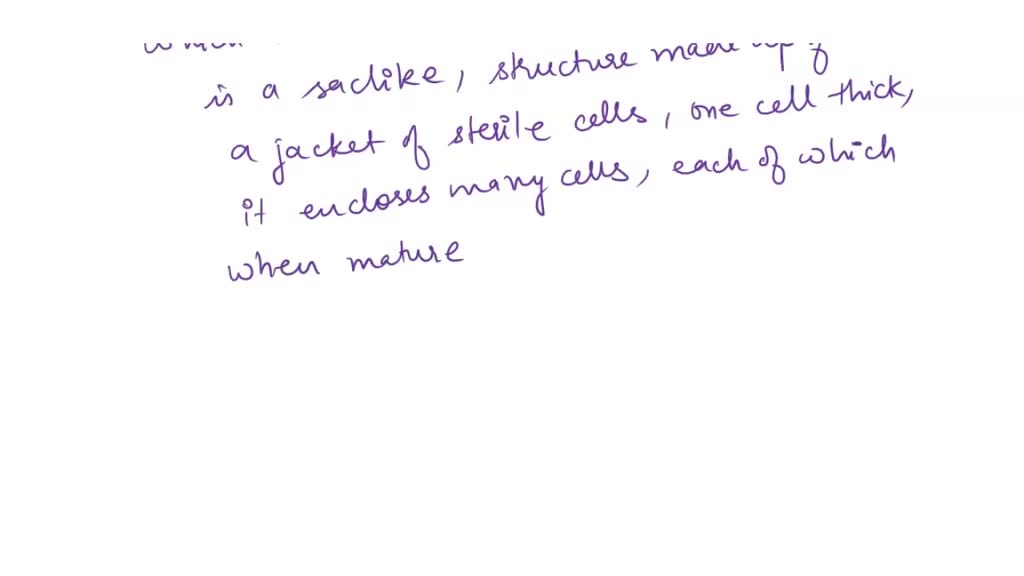 is a saclike, structure made up of
a jacket of sterile cells, one cell thick,
it encloses many cells, each of which
when mature